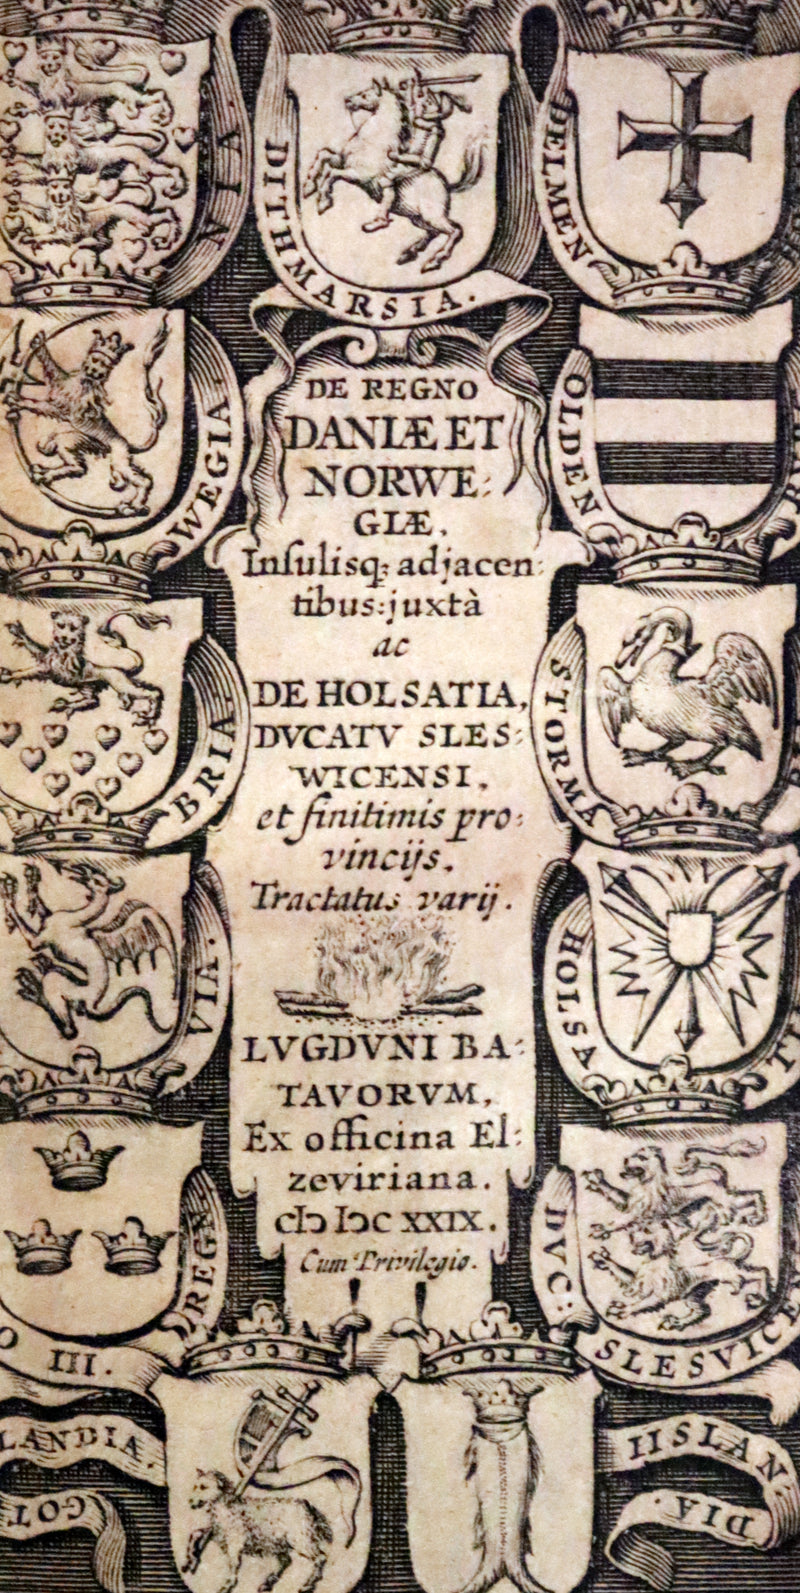 NIA.
DITHMARSIA.
DELMEN
WEGIA.
OLDEN
DE REGNO
DANIÆ ET
NORWE:
GIÆ,
Insulisq; adjacen:
tibus: juxtà
ac
DE HOLSATIA,
DVCATV SLES:
WICENSI,
et finitimis pro:
vincijs.
Tractatus varij.
BRIA.
STORMA
VIA.
HOLSA
LVGDVNI BA:
TAVORVM,
Ex officina El:
zeviriana.
cIɔ Iɔc XXIX.
Cum Privilegio.
REGN.
O III.
DVC:
SLESVICEN
LANDIA.
GOT
IISLAN
DIA.